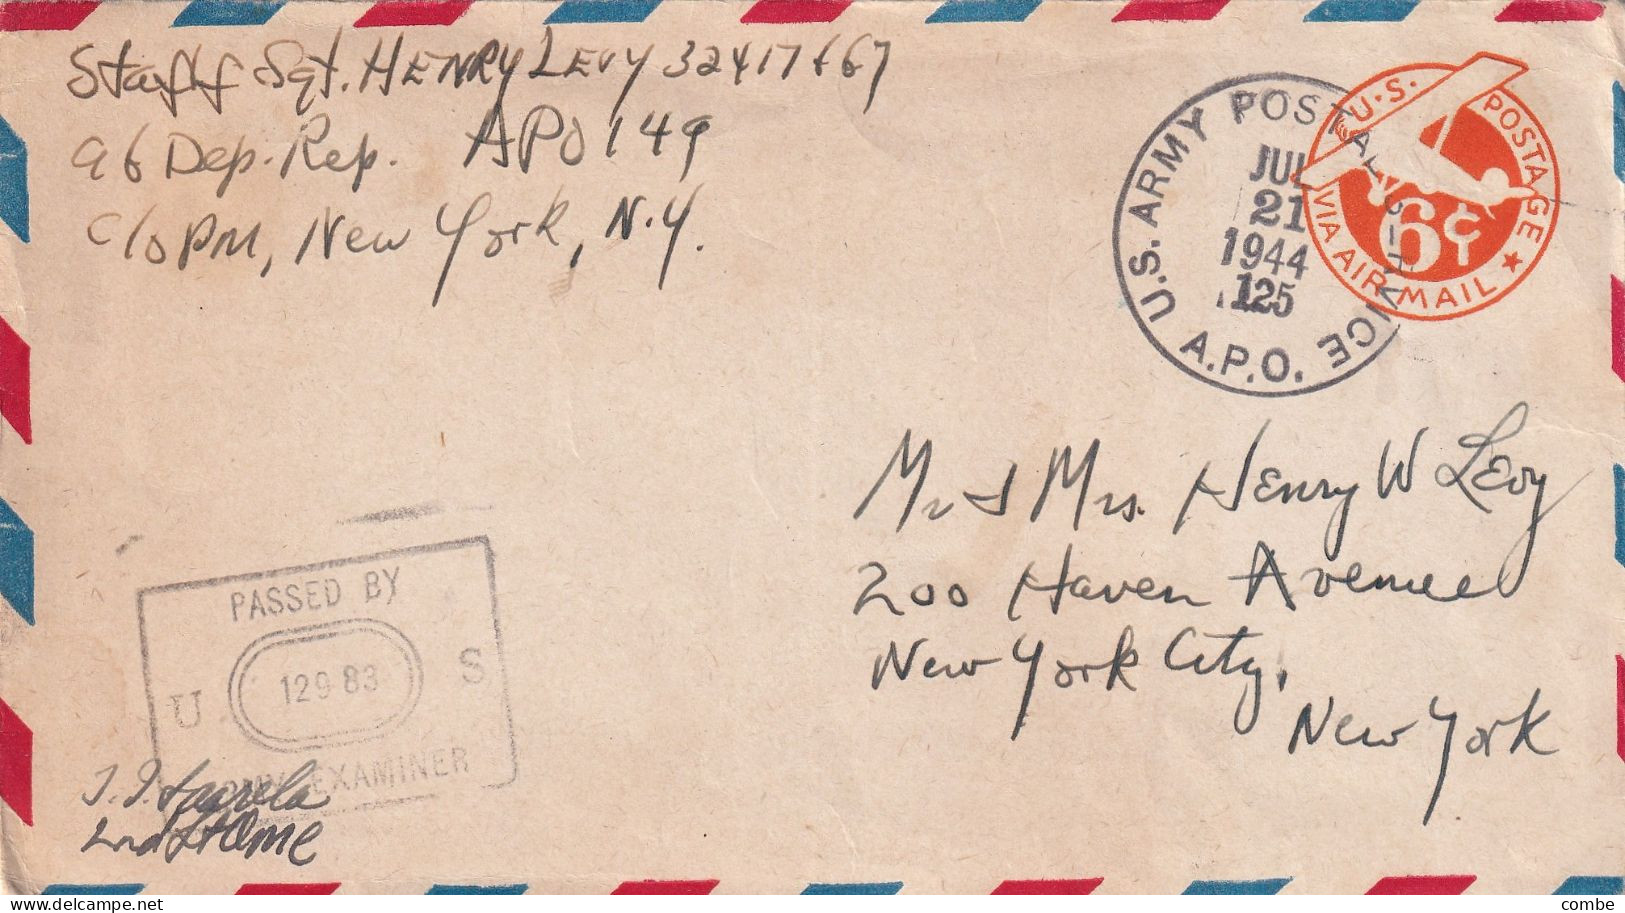 Staff Sgt. HENRY LEVY 32417667
96 Dep. Rep. APO 149
c/o PM, New York, N.Y.
U.S. ARMY POSTAL SERVICE
A.P.O.
JUL
21
1944
125
U.S. POSTAGE
6¢
VIA AIR MAIL
Mr & Mrs. Henry W Levy
200 Haven Avenue
New York City,
New York
PASSED BY
U 12983 S
ARMY EXAMINER
2nd Lt QMC
www.delcampe.net
combe